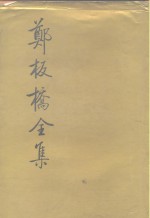 鄭板橋全集